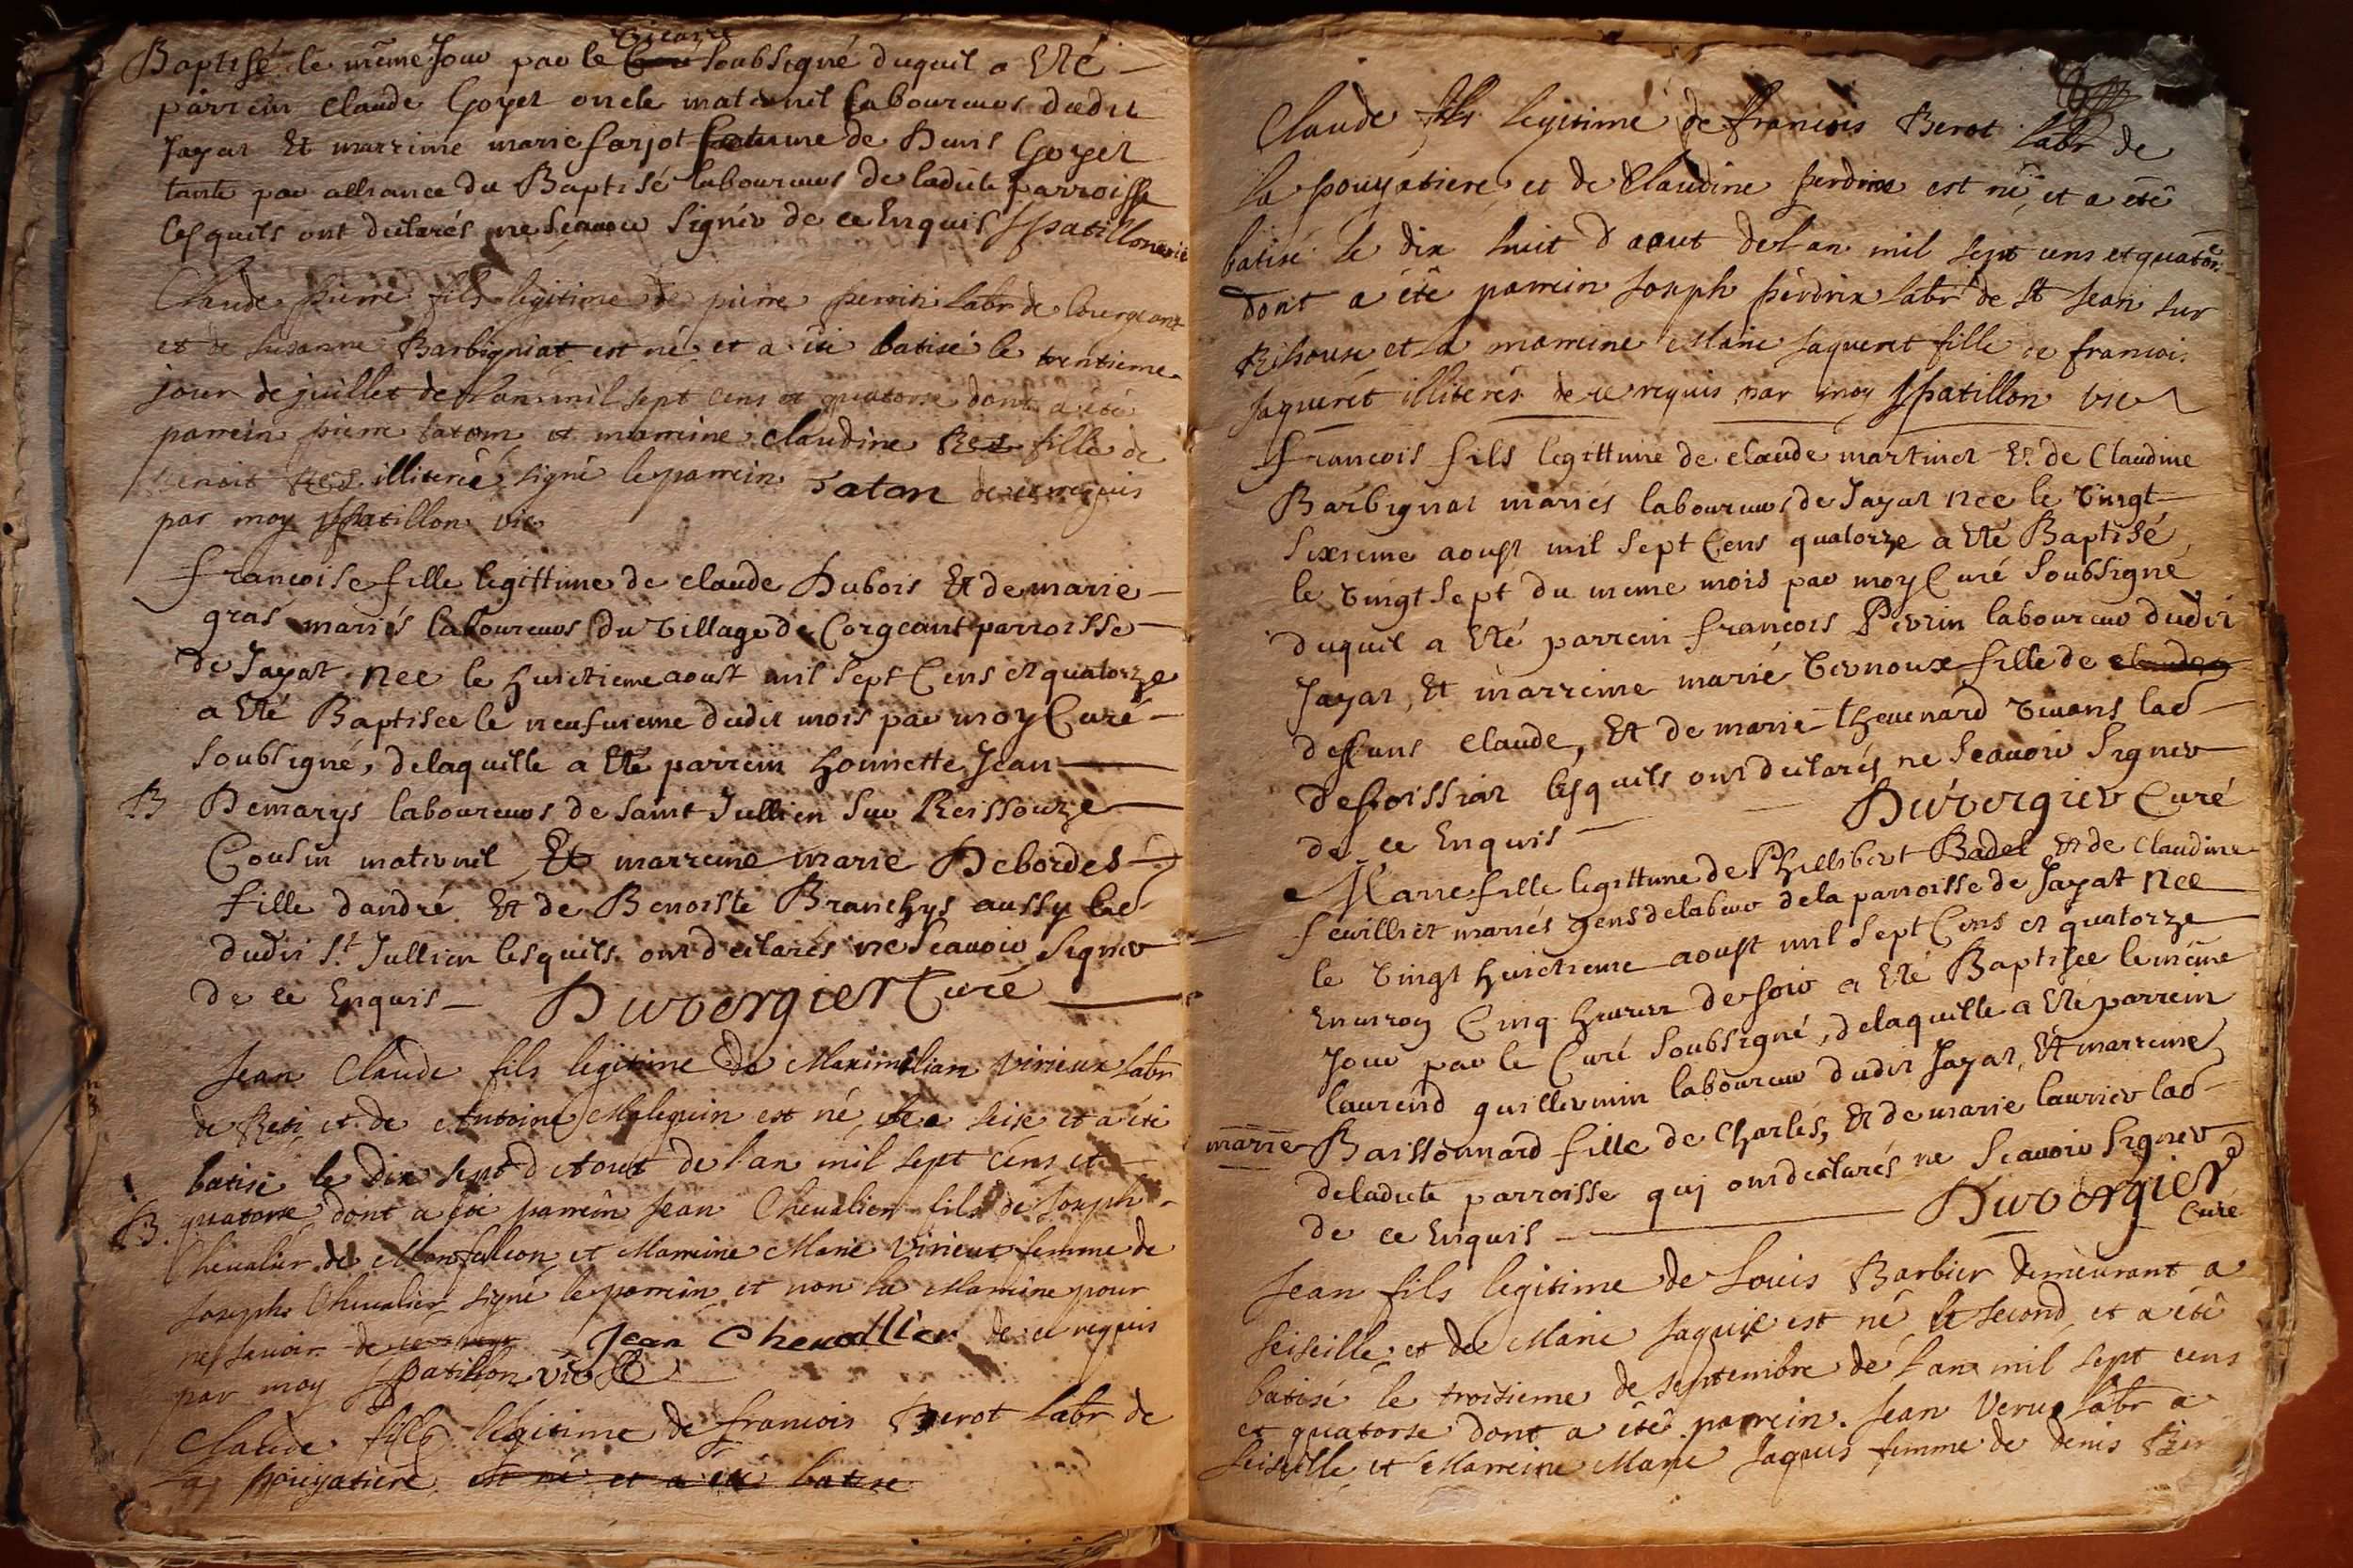 Vicaire
Baptisé le mẽme Jour par le Curé Soubsigné duquil a Eté
parrein claude Goyet oncle maternel laboureurs dudit
Jayat Et marreine marie farjot femme de Denis Goyet
tante par alliance du Baptisé laboureurs de ladicte parroisse
lesquels ont déclarés ne Scavoir Signér de ce Enquis Spatillon vic
Claude pierre fils legitime de pierre perrin labr de Courgeant
et de Susanne Barbigniat est né et a été batisé le trentieme
jour de juillet de l'an mil sept cens et quatorse dont a été
parrein pierre taton et marreine claudine Res fille de
benoit Res illiterée signé le parrein taton de ce requis
par moy Spatillon vic
francoise fille legittime de claude Dubois Et de marie
gras mariés laboureurs du Village de Corgeant parroisse
de Jayat nee le huictieme aoust mil Sept Cens et quatorze
a Eté Baptisee le neufvieme dudit mois par moy Curé
Soubsigné, delaquille a Eté parrein honnette Jean
B Demarys laboureurs de Saint Jullien Sur Reissouze
Cousin maternel Et marreine marie Debordes
fille dandré Et de Benoiste Branchys aussy lab
dudit St Jullien lesquels ont déclarés ne Scavoir Signer
de ce Enquis Duvergier Curé
Jean Claude fils legitime de Maximilian Virieux labr
de Besi et de Antoine Maleguin est né le seise et a été
batisé le dix sept d Aout de l'an mil sept cens et
B. quatorse dont a été parrein Jean Chevalier fils de Joseph
Chevalier de Monfalcon et Marreine Marie Virieux femme de
Joseph Chevalier signé le parrein et non la Marreine pour
ne savoir de ce req Jean Chevallier de ce requis
par moy Spatillon vic
Claude fille legitime de francois Berot labr de
la pouyatiere est né et a été batisé
Claude fils legitime de francois Berot labr de
la pouyatiere et de Claudine perdrix est né et a été
batisé le dix huit d aout de l an mil sept cens et quators
dont a été parrein Joseph perdrix labr de St Jean sur
Risouse et la marreine Marie Jaqueret fille de francois
Jaqueret illiterés de ce requis par moy Spatillon vic
francois fils legittime de claude martinet Et de Claudine
Barbignat mariés laboureurs de Jayat nee le vingt
Sixieme aoust mil Sept Cens quatorze a Eté Baptisé
le vingt sept du meme mois par moy Curé Soubsigné
duquil a Eté parrein francois Perrin laboureur dudit
Jayat, Et marreine marie Vernoux fille de claude
deffuns claude, Et de marie thevenard vivans lab
defoissiat lesquils ont déclarés ne Scavoir Signer
de ce Enquis Duvergier Curé
Marie fille legittime de Phillibert Badet Et de claudine
feuillet mariés gens delabeur de la parroisse de Jayat nee
le vingt huictieme aoust mil Sept Cens et quatorze
Environ Cinq heures de soir a Eté Baptisee le mẽme
Jour par le Curé Soubsigné, delaquille a Eté parrein
laurend guillermin laboureur dudit Jayat, Et marreine
marie Baissonnard fille de Charles, Et de marie laurier lab
deladicte parroisse qui ont déclarés ne Scavoir Signer
de ce Enquis Duvergier
Curé
Jean fils legitime de Louis Barbier demeurant a
Seiseille et de Marie Jaquis est né le second et a été
batisé le troisieme de septembre de l an mil sept cens
et quatorse dont a été parrein Jean Verne labr a
Seiseille et Marreine Marie Jaquis femme de denis